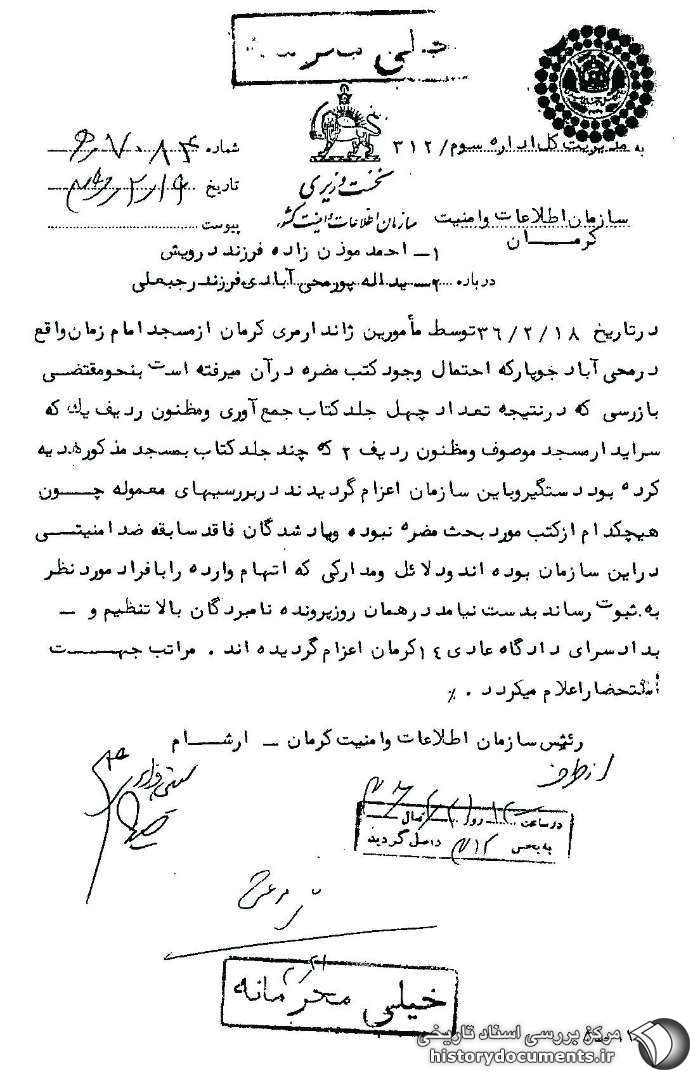 خیلی محرمانه
به مدیریت کل اداره سوم / ۳۱۲
شماره
نخست وزیری
تاریخ
سازمان اطلاعات و امنیت کشور
پیوست
سازمان اطلاعات و امنیت
کرمـــان
۱ــ احمد موذن زاده فرزند درویش
درباره ۲ــ یداله پورمحی آبادی فرزند رجبعلی
درتاریخ ۳۶/۲/۱۸ توسط مأمورین ژاندارمری کرمان ازمسجد امام زمان واقع
درمحی آباد جوپارکه احتمال وجود کتب مضره درآن میرفته است بنحومقتضی
بازرسی که درنتیجه تعداد چهل جلد کتاب جمع آوری ومظنون ردیف یک که
سرایدارمسجد موصوف ومظنون ردیف ۲ که چند جلد کتاب بمسجد مذکورهدیه
کرده بود دستگیروباین سازمان اعزام گردیدند دربررسیهای معموله چـــون
هیچکدام ازکتب مورد بحث مضره نبوده ویاد شدگان فاقد سابقه ضد امنیتـــی
دراین سازمان بوده اند ودلائل ومدارکی که اتهام وارده رابافراد مورد نظر
به ثبوت رساند بدست نیامد درهمان روزپرونده نامبردگان بالا تنظیم و ــ
بدادسرای دادگاه عادی ۱۴ کرمان اعزام گردیده اند . مراتب جهــــت
استحضاراعلام میگردد . ٪
رئیس سازمان اطلاعات وامنیت کرمان ــ ارشـــام
از طرف
در ساعت روز سال
به بخش ۳۱۲ واصل گردید
خیلی محرمانه
مرکز بررسی اسناد تاریخی
historydocuments.ir